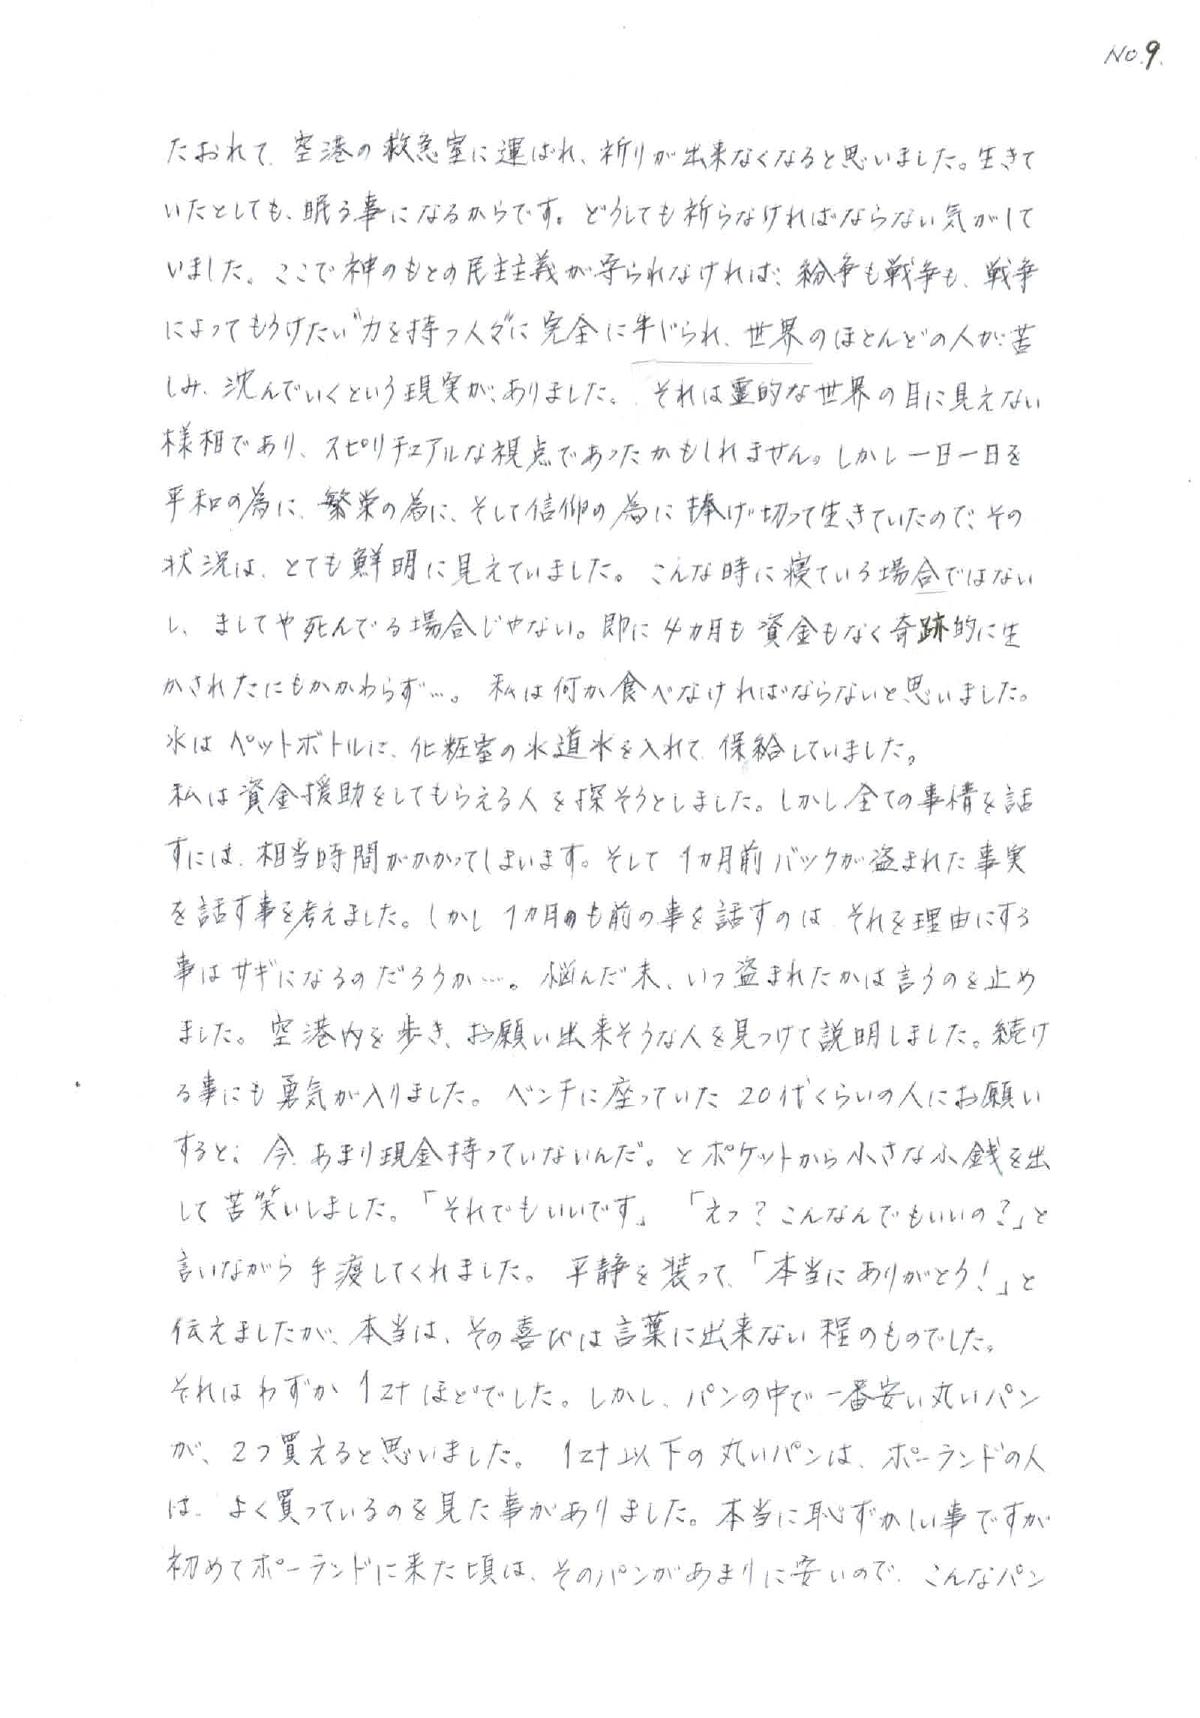 No.9.
たおれて、空港の救急室に運ばれ、祈りが出来なくなると思いました。生きて
いたとしても、眠う事になるからです。どうしても祈らなければならない気がして
いました。ここで神のもとの民主主義が守られなければ、紛争も戦争も、戦争
によってもうけたい"力を持つ人々"に完全に牛じられ、世界のほとんどの人が苦
しみ、沈んでいくという現実が、ありました。それは霊的な世界の目に見えない
様相であり、スピリチュアルな視点であったかもしれません。しかし一日一日を
平和の為に、繁栄の為に、そして信仰の為に捧げ切って生きていたので、その
状況は、とても鮮明に見えていました。こんな時に寝ている場合ではない
し、ましてや死んでる場合じゃない。即に4カ月も資金もなく奇跡的に生
かされたにもかかわらず…。私は何か食べなければならないと思いました。
水はペットボトルに、化粧室の水道水を入れて、保給していました。
私は資金援助をしてもらえる人を探そうとしました。しかし全ての事情を話
すには、相当時間がかかってしまいます。そして1カ月前バックが盗まれた事実
を話す事を考えました。しかし1カ月も前の事を話すのは、それを理由にする
事はサギになるのだろうか…。悩んだ末、いつ盗まれたかは言うのを止め
ました。空港内を歩き、お願い出来そうな人を見つけて説明しました。続け
る事にも勇気が入りました。ベンチに座っていた20代くらいの人にお願い
すると、今、あまり現金持っていないんだ。とポケットから小さな小銭を出
して苦笑いしました。「それでもいいです」「えっ?こんなんでもいいの?」と
言いながら手渡してくれました。平静を装って、「本当にありがとう!」と
伝えましたが、本当は、その喜びは言葉に出来ない程のものでした。
それはわずか1złほどでした。しかし、パンの中で一番安い丸いパン
が、2つ買えると思いました。1zł以下の丸いパンは、ポーランドの人
は、よく買っているのを見た事がありました。本当に恥ずかしい事ですが
初めてポーランドに来た頃は、そのパンがあまりに安いので、こんなパン